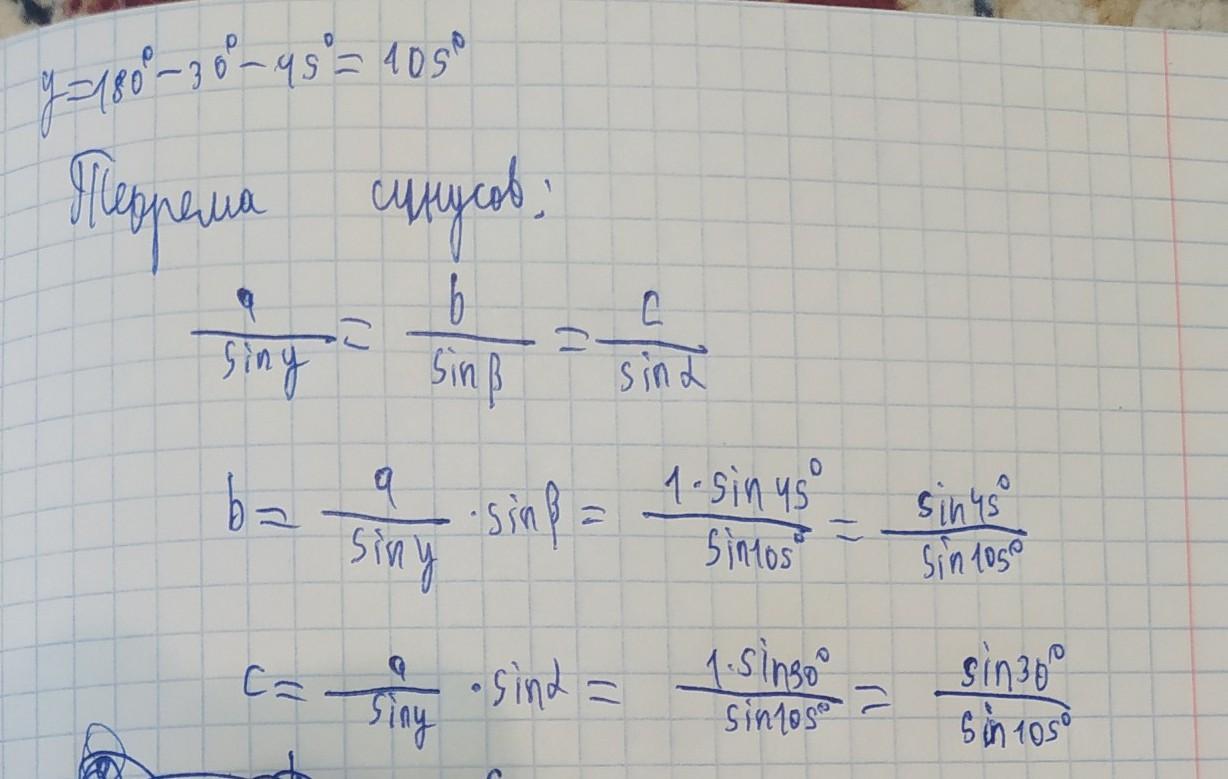 y=180°-30°-45°=105°
Теорема синусов:
a/sin y = b/sin β = c/sin α
b = a/sin y · sin β = 1·sin 45°/sin 105° = sin 45°/sin 105°
c = a/sin y · sin α = 1·sin 30°/sin 105° = sin 30°/sin 105°